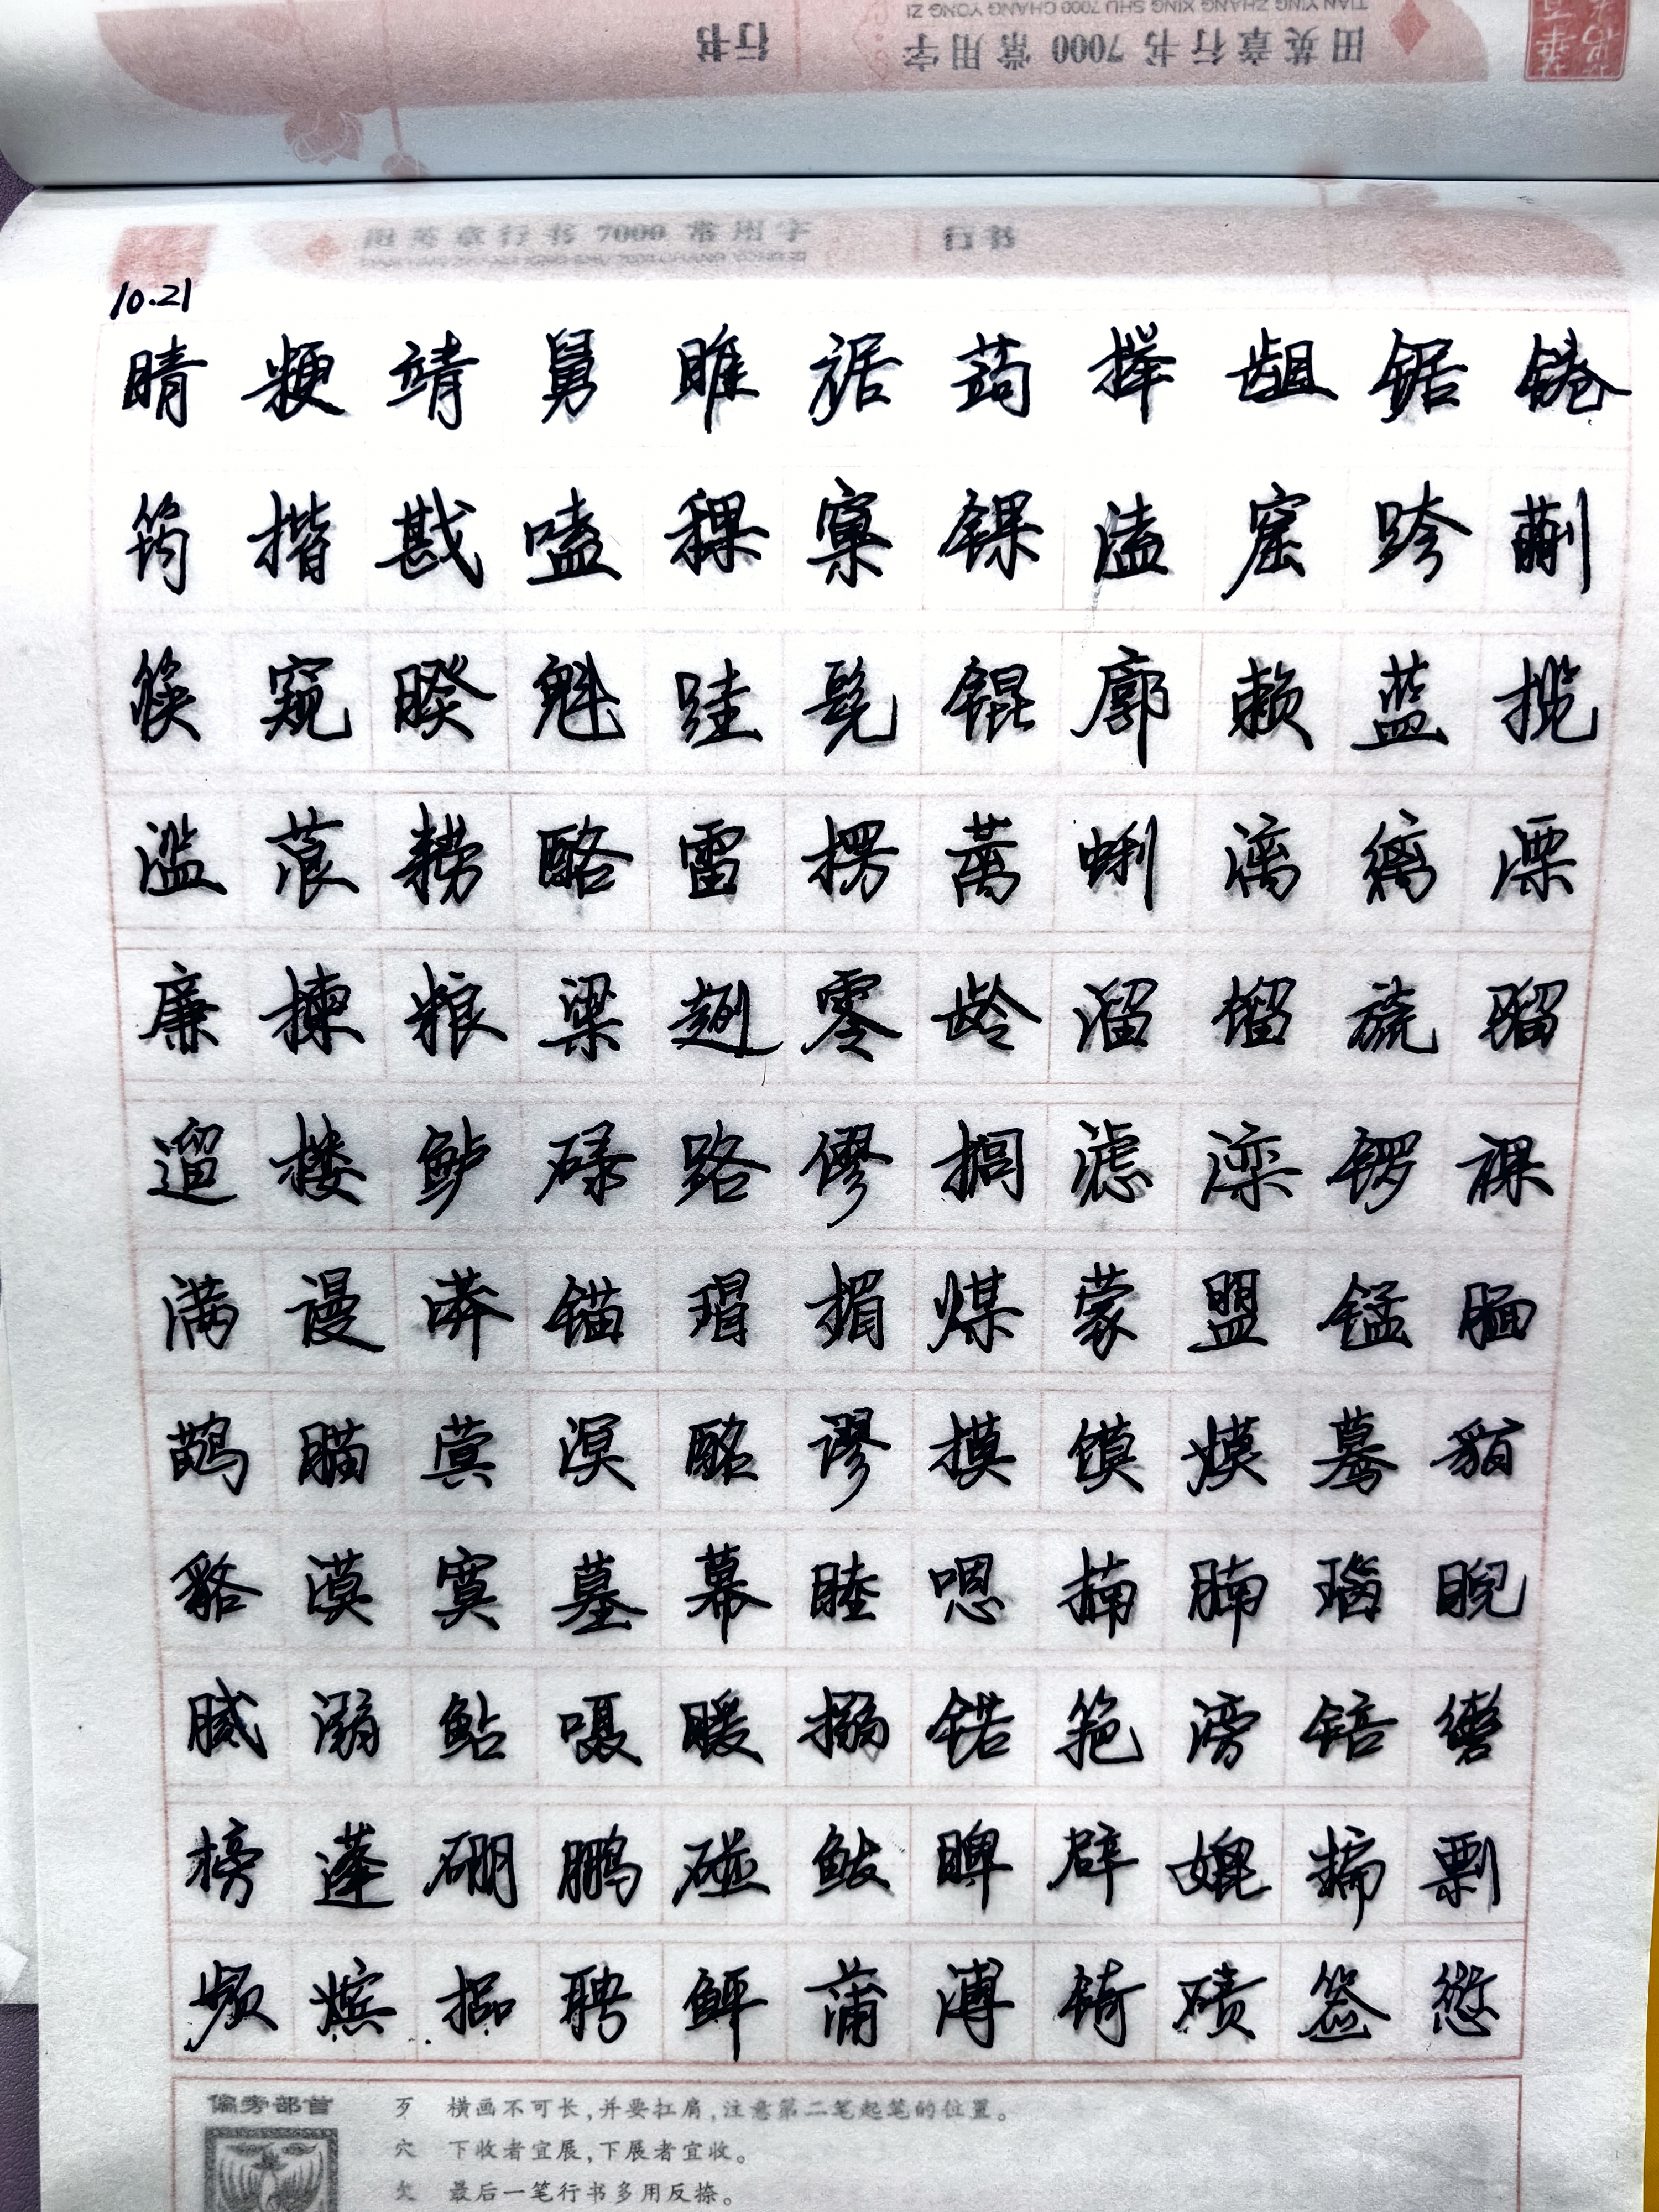 田英章行书7000常用字 行书
TIAN YING ZHANG XING SHU 7000 CHANG YONG ZI
田英章行书7000常用字 行书
10.21
睛 粳 靖 舅 睢 裾 蒟 榉 龃 锯 锩
筠 揩 戡 嗑 稞 窠 锞 溘 窟 跨 蒯
筷 窥 睽 魁 跬 髡 锟 廓 赖 蓝 揽
滥 蒗 耢 酪 雷 楞 蓠 蜊 漓 缡 溧
廉 楝 粮 粱 趔 零 龄 溜 馏 旒 骝
遛 楼 鲈 碌 路 僇 榈 滤 滦 锣 裸
满 谩 漭 锚 瑁 楣 煤 蒙 盟 锰 腼
鹋 瞄 蓂 溟 酩 谬 摸 馍 嫫 蓦 貊
貉 漠 寞 墓 幕 睦 嗯 楠 腩 瑙 睨
腻 溺 鲇 嗫 暖 搦 锘 筢 滂 锫 辔
榜 蓬 硼 鹏 碰 鲅 睥 辟 媲 犏 剽
频 嫔 榀 聘 鲆 蒲 溥 锜 碛 签 愆
偏旁部首 歹 横画不可长，并要扛肩，注意第二笔起笔的位置。
穴 下收者宜展，下展者宜收。
欠 最后一笔行书多用反捺。